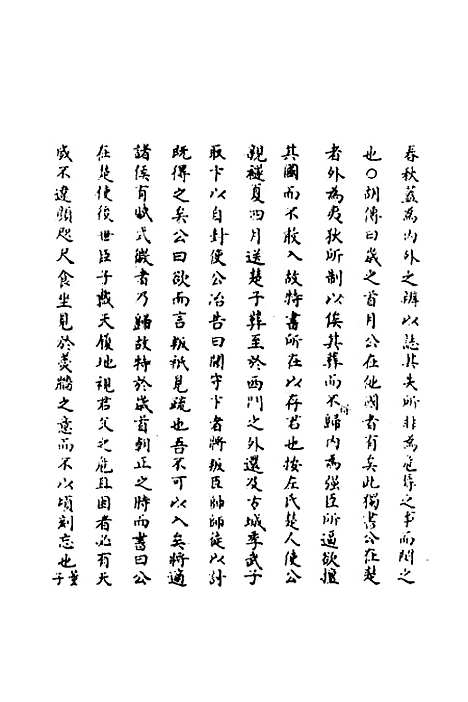 春秋蓋為內外之辨以誌其失所非為危辱之事而閔之
也○胡傳曰歲之首月公在他國者有矣此獨書公在楚
者外為夷狄所制以俟其葬而不得歸內為強臣所逼欲擅
其國而不敢入故特書所在以存君也按左氏楚人使公
親襚夏四月送楚子葬至於西門之外還及方城季武子
取卞以自封使公冶告曰聞守卞者將叛臣帥師徒以討
既得之矣公曰欲而言叛祇見疏也吾不可以入矣將適
諸侯有賦式微者乃歸故特於歲首朝正之時而書曰公
在楚使後世臣子戴天履地視君父之危且困者必有天
威不違顏咫尺食坐見於羹牆之意而不以頃刻忘也葉子